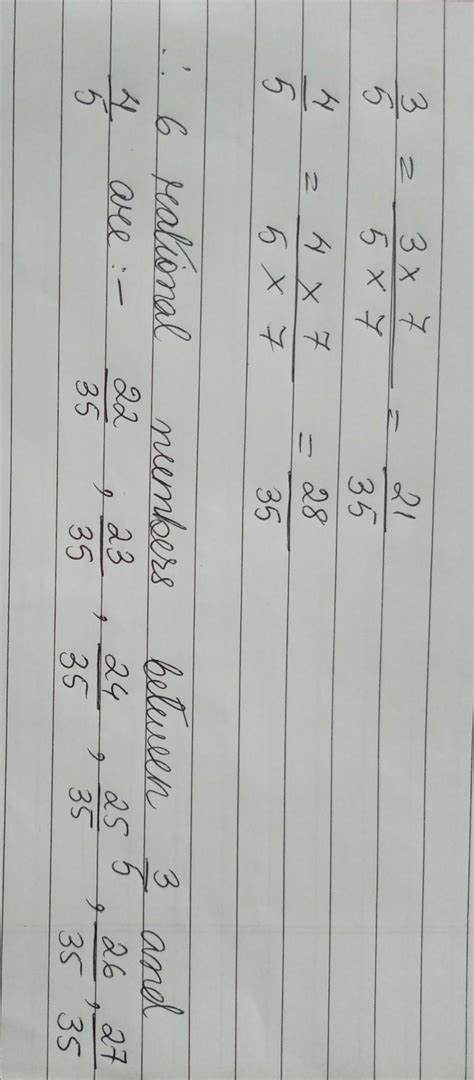 3/5 = 3 × 7 / 5 × 7 = 21/35
4/5 = 4 × 7 / 5 × 7 = 28/35
∴ 6 rational numbers between 3/5 and
4/5 are :- 22/35 , 23/35 , 24/35 , 25/35 , 26/35 , 27/35